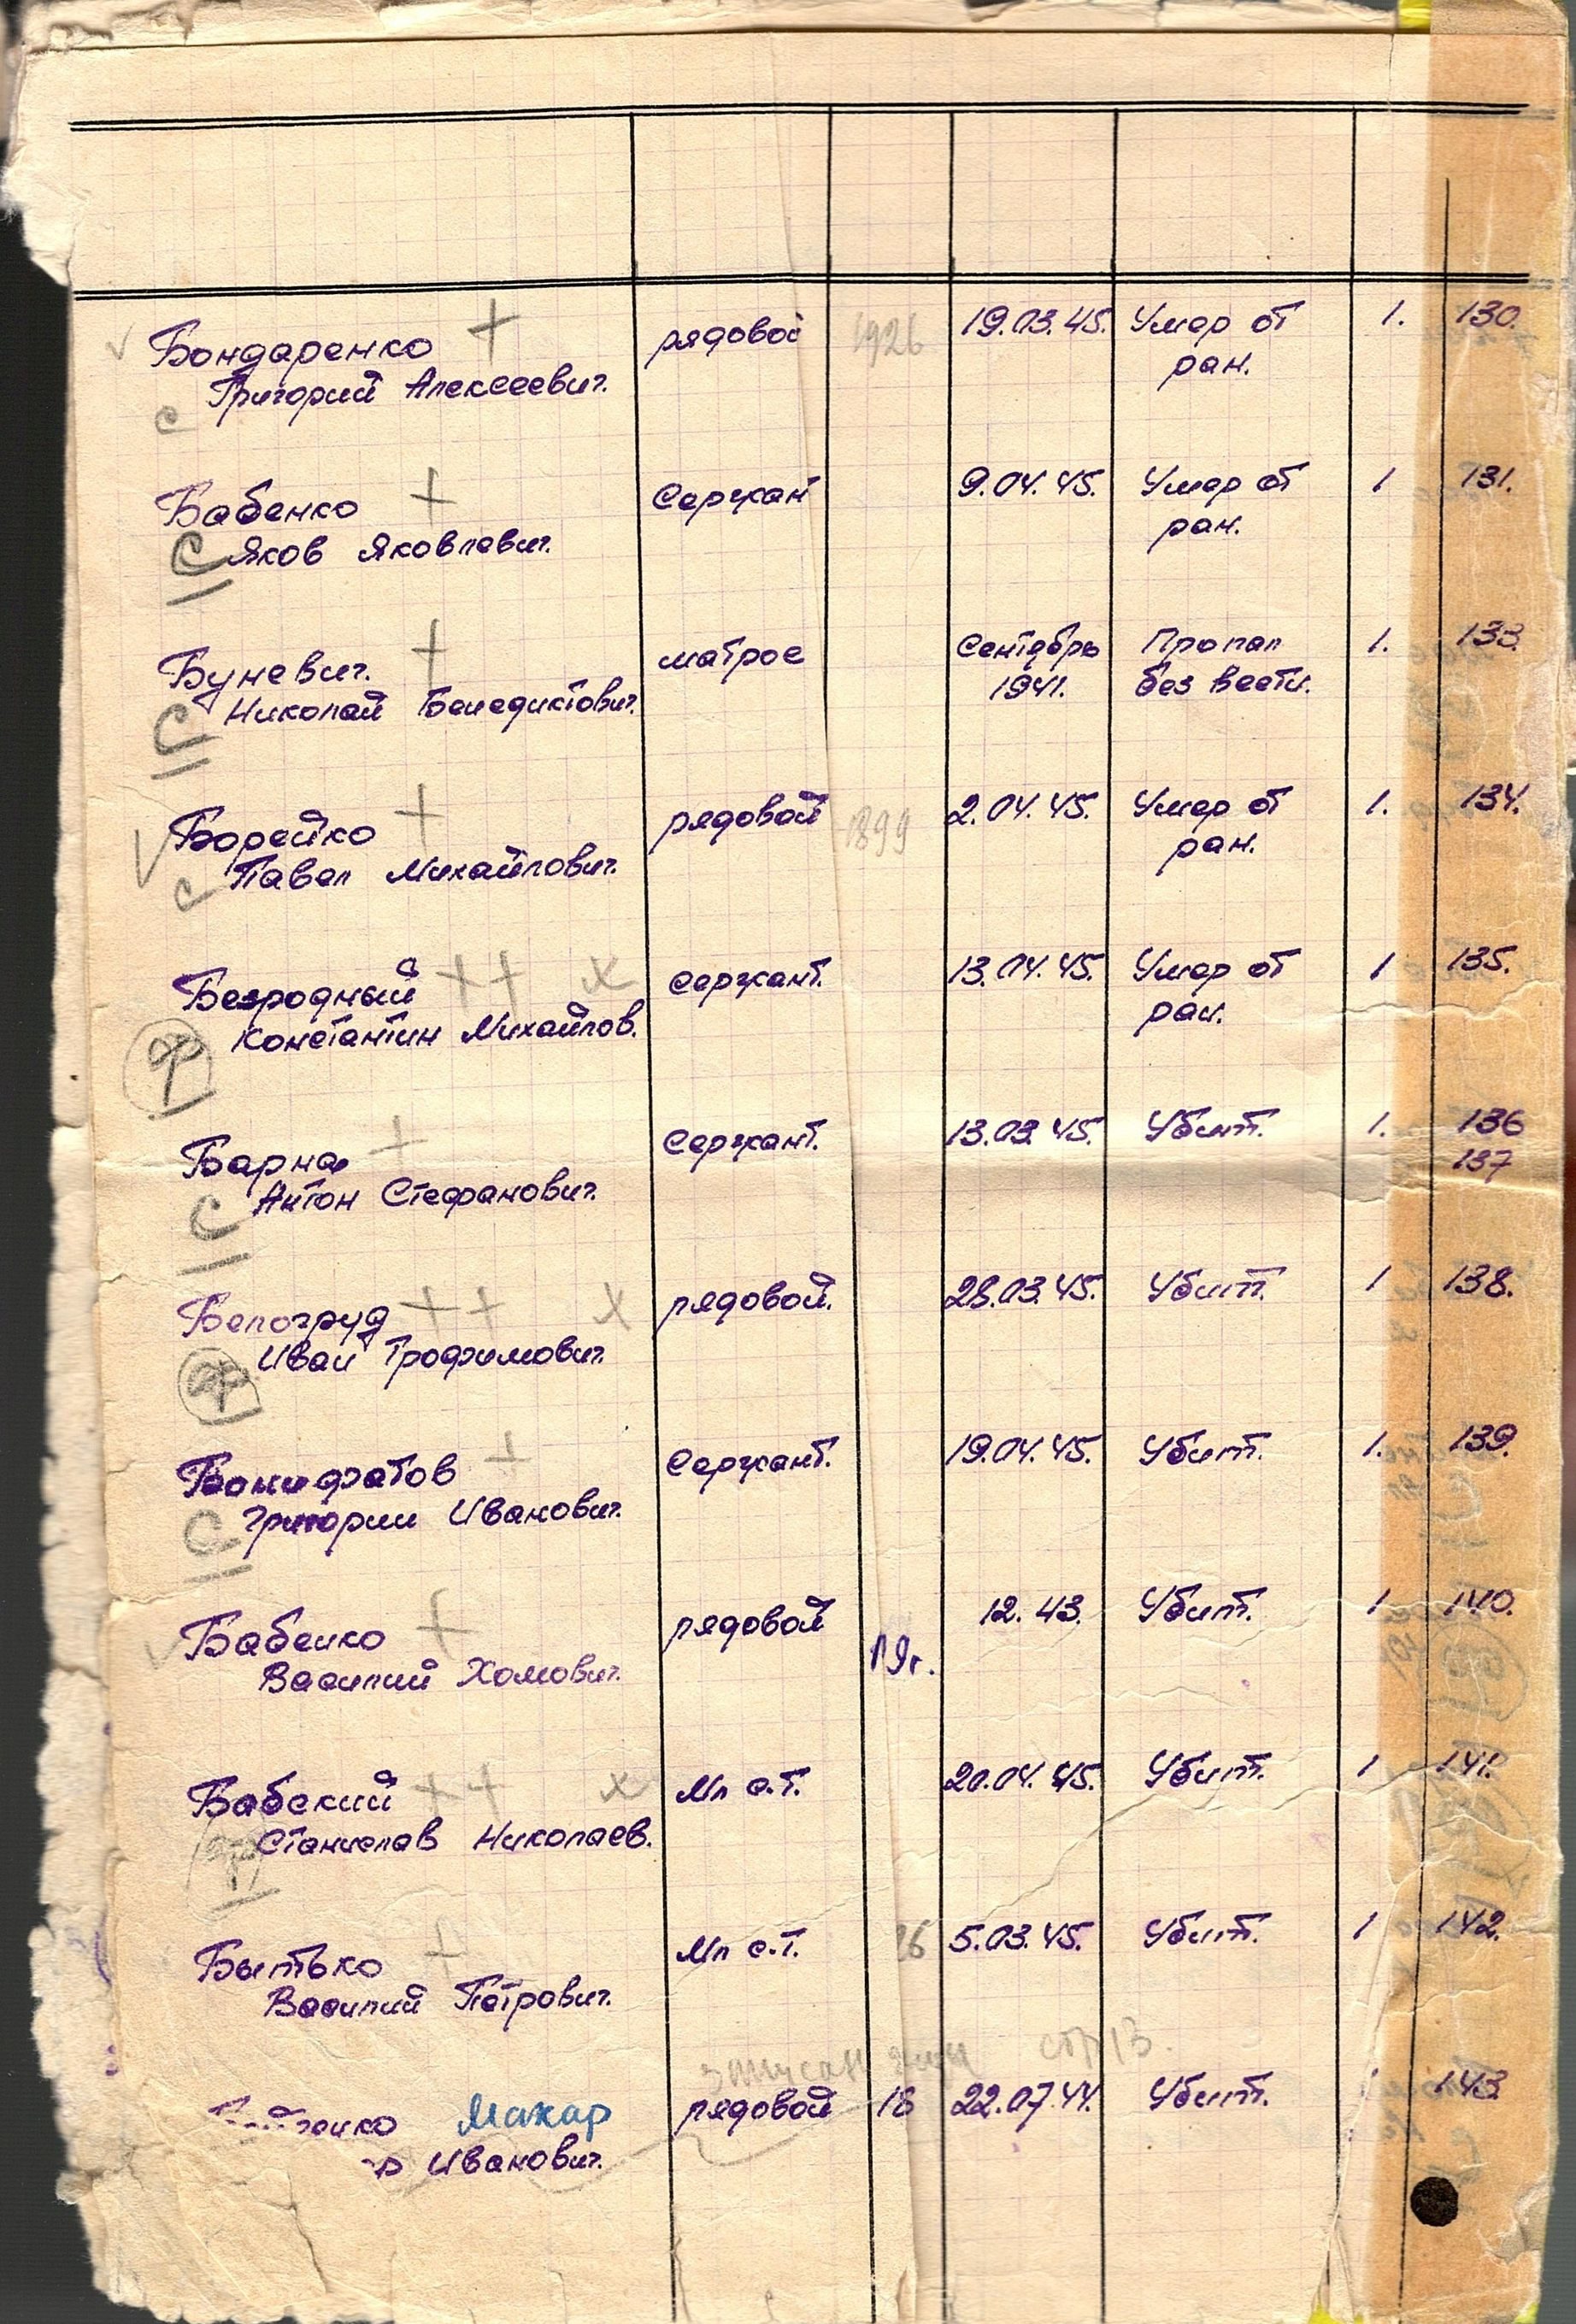 Бондаренко + рядовой 1926 19.03.45. Умер от 1. 130.
Григорий Алексеевич. ран.
с
Бабенко + Сержан 9.04.45. Умер от 1 131.
С Яков Яковлевич. ран.
Буневич. + матрос Сентябрь Пропал 1. 133.
С Николай Бенедиктович. 1941. без вести.
Борейко + рядовой 1899 2.04.45. Умер от 1. 134.
с Павел Михайлович. ран.
Безродный ++ х сержант. 13.04.45. Умер от 1 135.
ф Константин Михайлов. ран.
Барна + Сержант. 13.03.45. Убит. 1. 136
С Антон Стефанович. 137
Белогруд ++ х рядовой. 28.03.45. Убит. 1 138.
ф Иван Трофимович.
Бонифатов + Сержант. 19.04.45. Убит. 1. 139.
С Григории Иванович.
Бабенко + рядовой 19г. 12.43. Убит. 1 140.
Василий Хомович.
Бабский ++ х Мл с.т. 20.04.45. Убит. 1 141.
ф Станислав Николаев.
Бытько + Мл с.т. 26 5.03.45. Убит. 1 142.
Василий Петрович.
записан стр 13.
Макар рядовой 18 22.07.44. Убит. 1 143
Иванович.